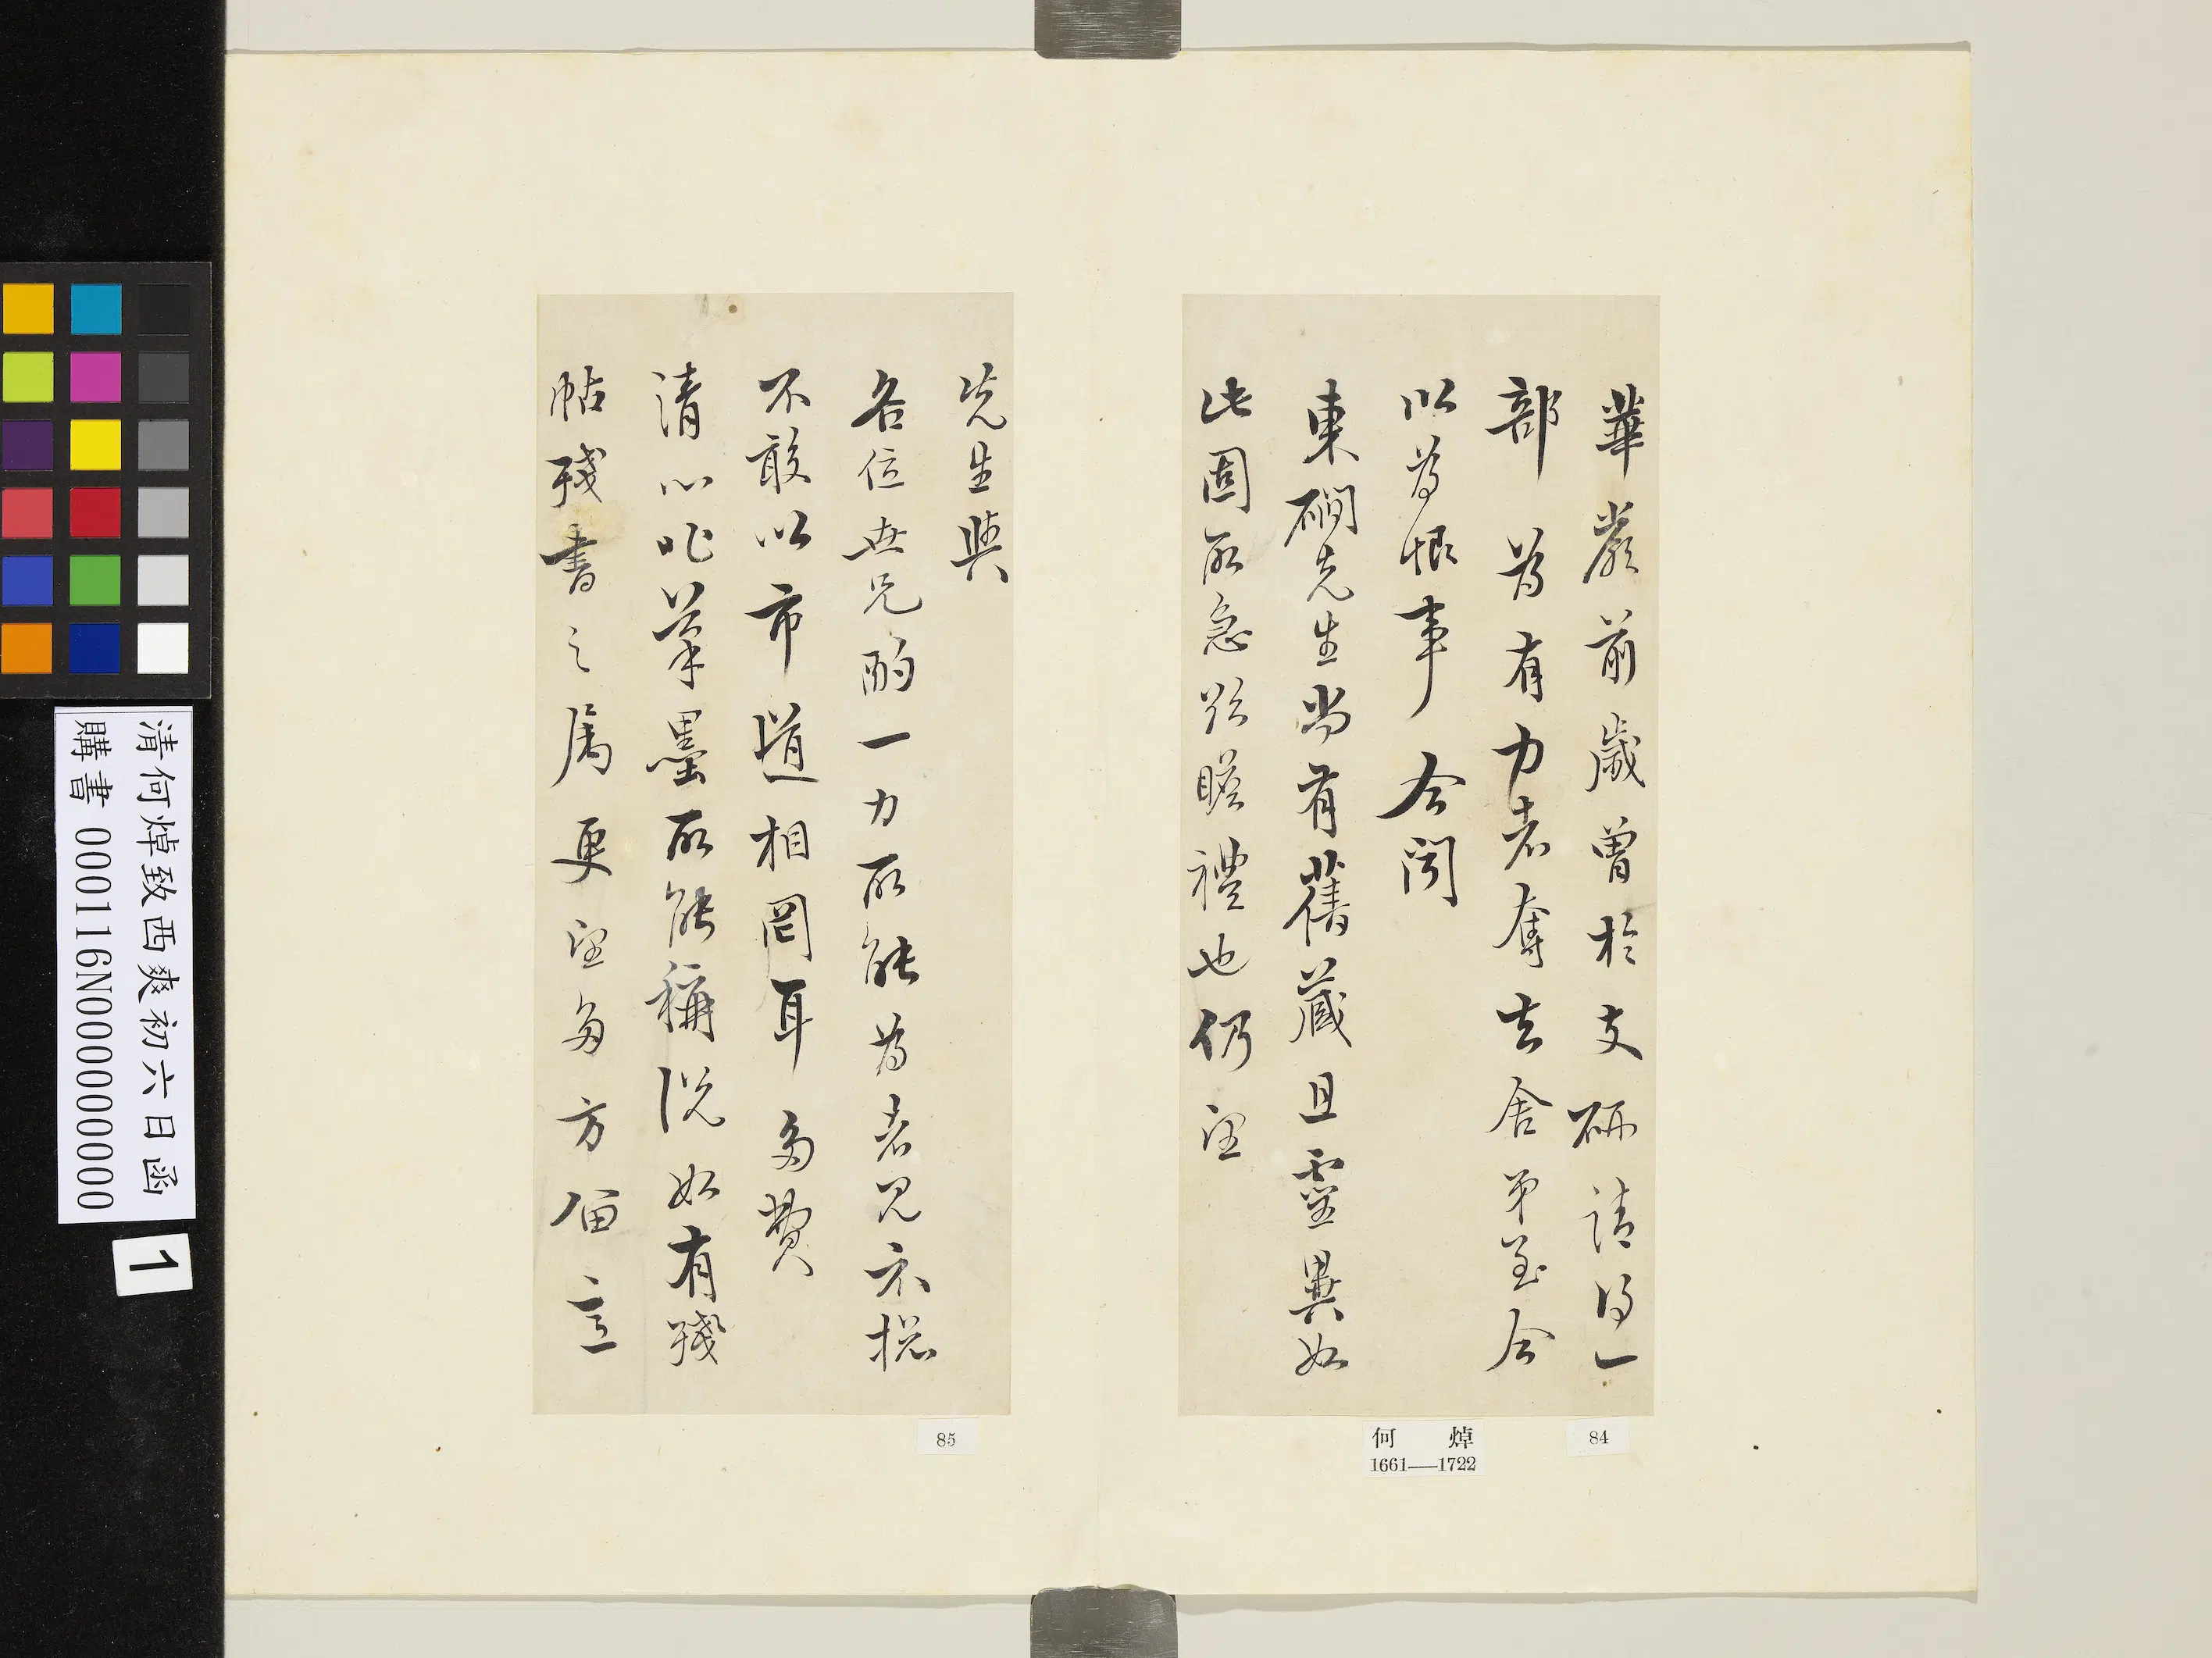 華嚴前歲曾於支硎請得一
部為有力者奪去舍弟至今
以為恨事今聞
東磵先生尚有舊藏且靈異如
此固所急欲瞻禮也仍望
先生與
各位世兄酌一力所能為者見示檢
不敢以市道相罔耳多費
清心非筆墨所能稱說如有殘
帖殘書之屬更望多方留意
84
何焯
1661—1722
85
清何焯致西爽初六日函
購書 000116N000000000
1